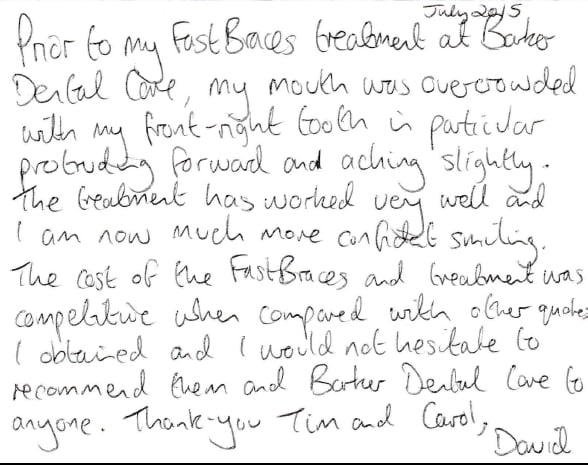 July 2015
Prior to my FastBraces treatment at Barker
Dental Care, my mouth was overcrowded
with my front-right tooth in particular
protruding forward and aching slightly.
The treatment has worked very well and
I am now much more confident smiling.
The cost of the FastBraces and treatment was
competitive when compared with other quotes
I obtained and I would not hesitate to
recommend them and Barker Dental Care to
anyone. Thank-you Tim and Carol,
David